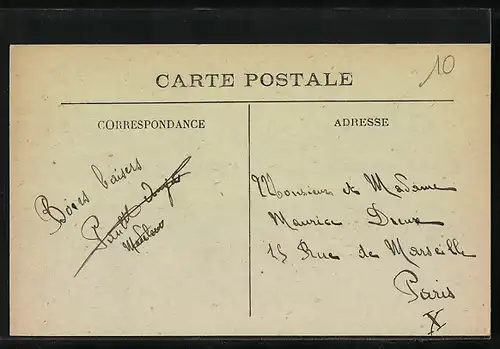 10
CARTE POSTALE
CORRESPONDANCE
ADRESSE
Bons baisers
Monsieur et Madame
Maurice Dreux
15 Rue de Marseille
Paris
X